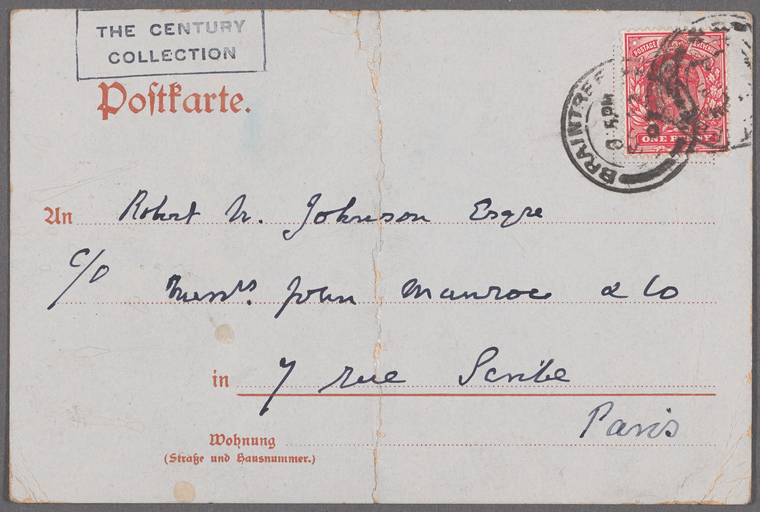 THE CENTURY
COLLECTION
Postkarte.
POSTAGE REVENUE
ONE PENNY
BRAINTREE
8 PM
An Robert U. Johnson Esqre
c/o Messrs. John Munroe & Co
in 7 rue Scribe
Paris
Wohnung
(Straße und Hausnummer.)